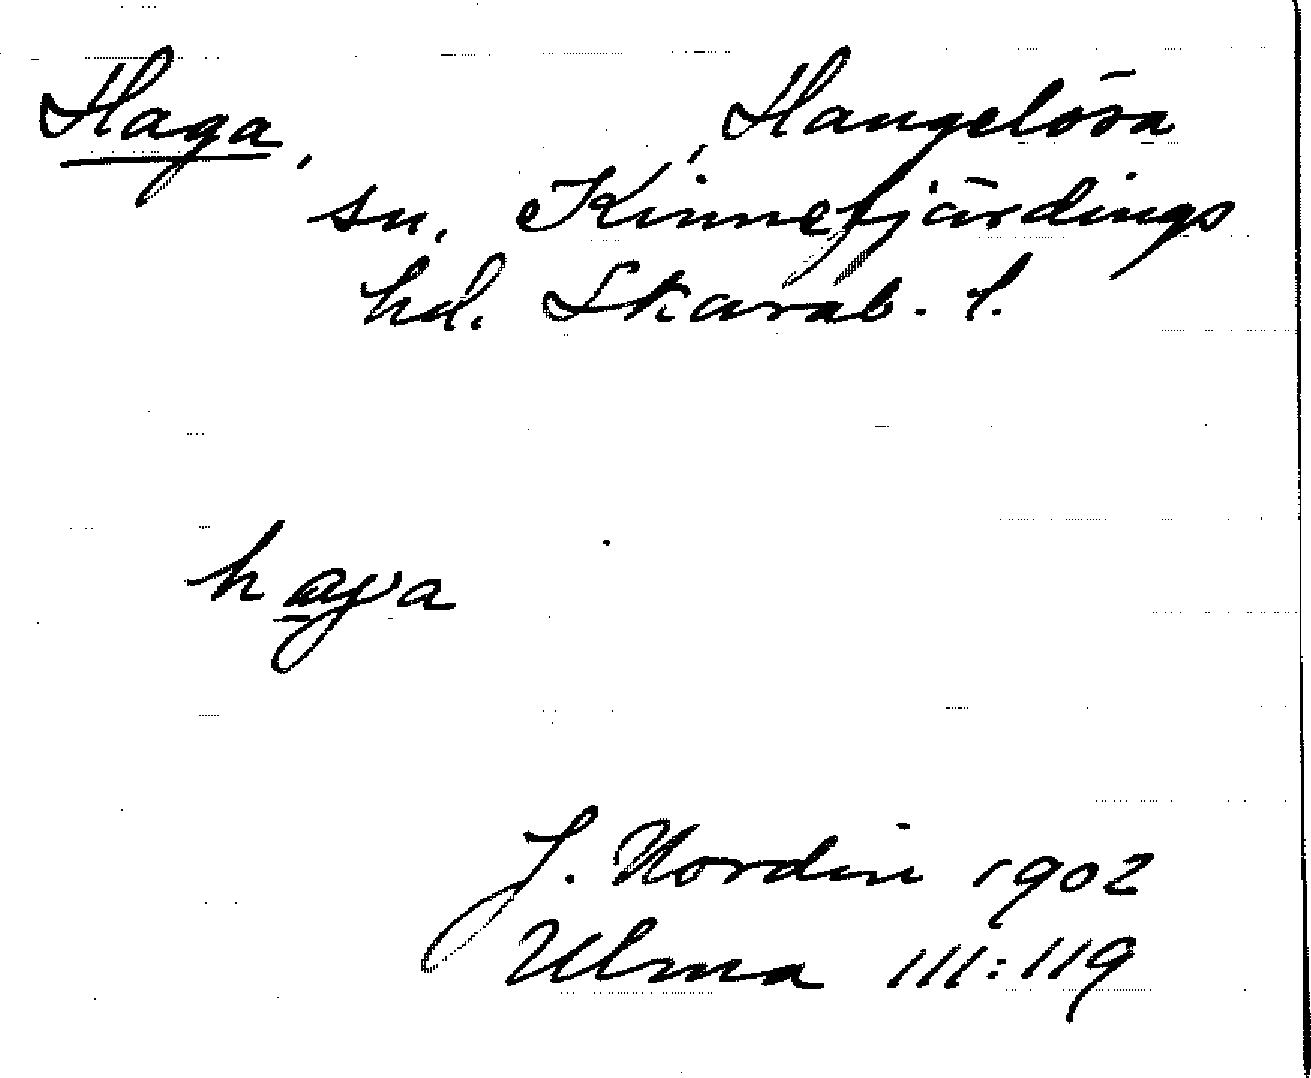 Haga, Hangelösa
sn, Kinnefjärdings
hd. Skarab. l.
haga
J. Nordin 1902
Ulma 111:119